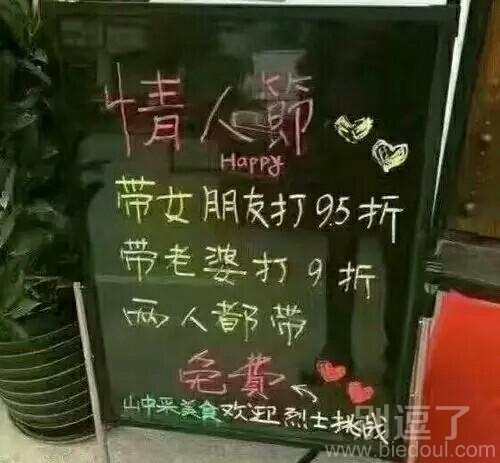 情人節
Happy
带女朋友打95折
带老婆打9折
两人都带
免費
山中采美食欢迎烈士挑战
别逗了
www.biedoul.com